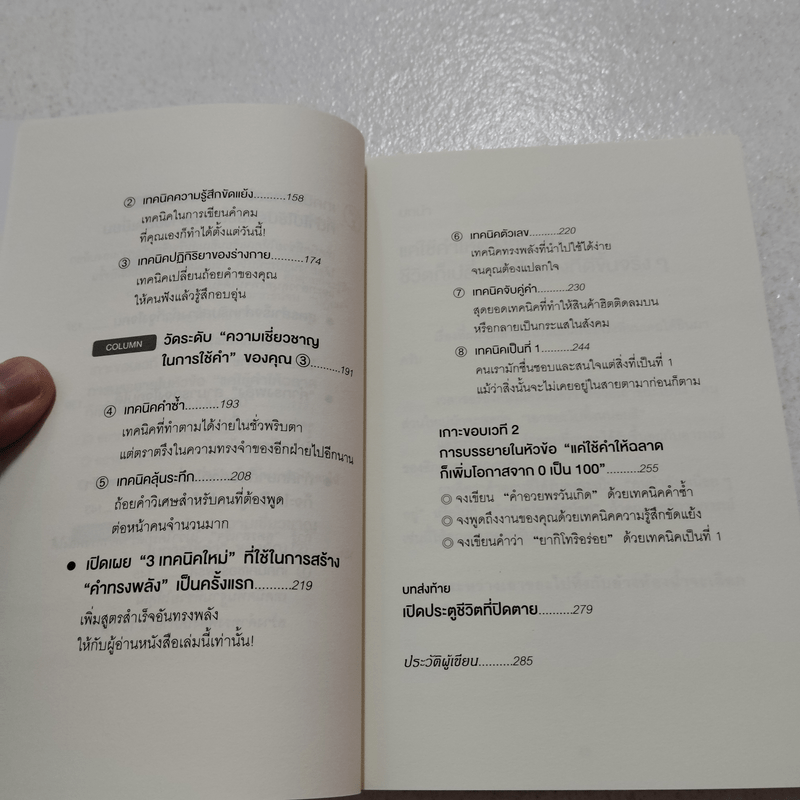 ② เทคนิคความรู้สึกขัดแย้ง..........158
เทคนิคในการเขียนคำคม
ที่คุณเองก็ทำได้ตั้งแต่วันนี้!
③ เทคนิคปฏิกิริยาของร่างกาย..........174
เทคนิคเปลี่ยนถ้อยคำของคุณ
ให้คนฟังแล้วรู้สึกอบอุ่น
COLUMN วัดระดับ “ความเชี่ยวชาญ
ในการใช้คำ” ของคุณ ③..........191
④ เทคนิคคำซ้ำ..........193
เทคนิคที่ทำตามได้ง่ายในชั่วพริบตา
แต่ตราตรึงในความทรงจำของอีกฝ่ายไปอีกนาน
⑤ เทคนิคลุ้นระทึก..........208
ถ้อยคำวิเศษสำหรับคนที่ต้องพูด
ต่อหน้าคนจำนวนมาก
● เปิดเผย “3 เทคนิคใหม่” ที่ใช้ในการสร้าง
“คำทรงพลัง” เป็นครั้งแรก..........219
เพิ่มสูตรสำเร็จอันทรงพลัง
ให้กับผู้อ่านหนังสือเล่มนี้เท่านั้น!
⑥ เทคนิคตัวเลข..........220
เทคนิคทรงพลังที่นำไปใช้ได้ง่าย
จนคุณต้องแปลกใจ
⑦ เทคนิคจับคู่คำ..........230
สุดยอดเทคนิคที่ทำให้สินค้าฮิตติดลมบน
หรือกลายเป็นกระแสในสังคม
⑧ เทคนิคเป็นที่ 1..........244
คนเรามักชื่นชอบและสนใจแต่สิ่งที่เป็นที่ 1
แม้ว่าสิ่งนั้นจะไม่เคยอยู่ในสายตามาก่อนก็ตาม
เกาะขอบเวที 2
การบรรยายในหัวข้อ “แค่ใช้คำให้ฉลาด
ก็เพิ่มโอกาสจาก 0 เป็น 100”..........255
◎ จงเขียน “คำอวยพรวันเกิด” ด้วยเทคนิคคำซ้ำ
◎ จงพูดถึงงานของคุณด้วยเทคนิคความรู้สึกขัดแย้ง
◎ จงเขียนคำว่า “ยากิโทริอร่อย” ด้วยเทคนิคเป็นที่ 1
บทส่งท้าย
เปิดประตูชีวิตที่ปิดตาย..........279
ประวัติผู้เขียน..........285